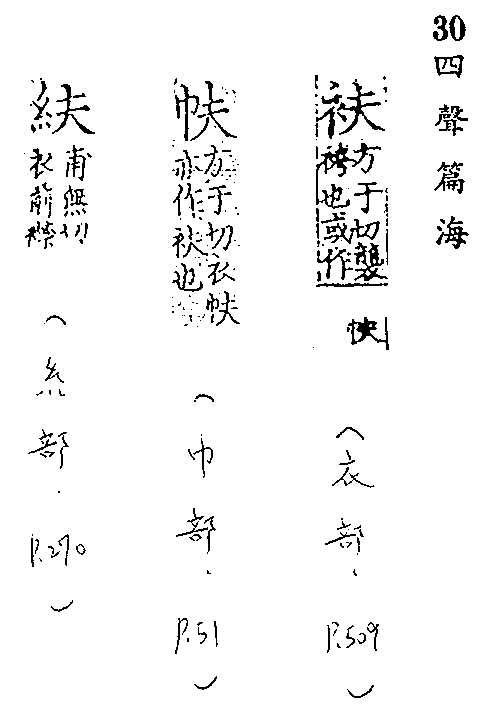 30四聲篇海
衭方于切襲
袴也或作
帗
(衣部.P.509)
帗方于切衣帗
亦作衭也
(巾部.P.51)
紨甫無切
衣前襟
(糸部.P.270)